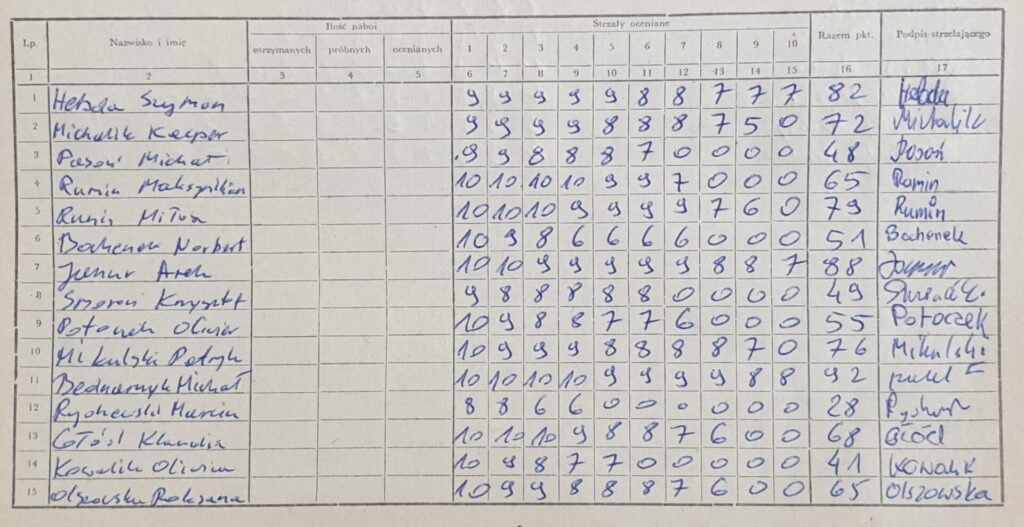 Lp. Nazwisko i imię Ilość naboi Strzały oceniane Razem pkt. Podpis strzelającego
otrzymanych próbnych ocenianych 1 2 3 4 5 6 7 8 9 10
1 2 3 4 5 6 7 8 9 10 11 12 13 14 15 16 17
1 Hebda Szymon 9 9 9 9 9 8 8 7 7 7 82 Hebda
2 Michalik Kacper 9 9 9 9 8 8 8 7 5 0 72 Michalik
3 Pasoń Michał 9 9 8 8 8 7 0 0 0 0 48 Pasoń
4 Rumin Maksymilian 10 10 10 10 9 9 7 0 0 0 65 Rumin
5 Rumin Miłosz 10 10 10 9 9 9 9 7 6 0 79 Rumin
6 Bochenek Norbert 10 9 8 6 6 6 6 0 0 0 51 Bochenek
7 Arek 10 10 9 9 9 9 9 8 8 7 88
8 9 8 8 8 8 8 0 0 0 0 49
9 Potoczek Oliwier 10 9 8 8 7 7 6 0 0 0 55 Potoczek
10 Mikulski Patryk 10 9 9 9 8 8 8 8 7 0 76 Mikulski
11 Bednarczyk Michał 10 10 10 10 9 9 9 9 8 8 92
12 Rychlewski Marcin 8 8 6 6 0 0 0 0 0 0 28
13 Głód Klaudia 10 10 10 9 8 8 7 6 0 0 68 Głód
14 Kowalik Oliwia 10 9 8 7 7 0 0 0 0 0 41 Kowalik
15 Olszowska Roksana 10 9 9 8 8 8 7 6 0 0 65 Olszowska